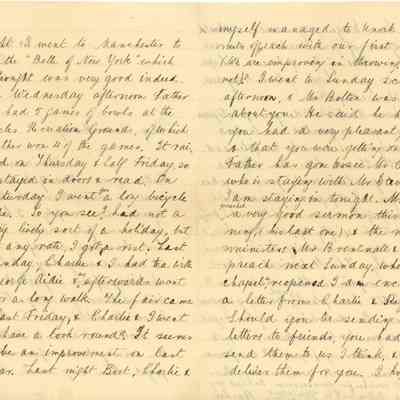 I went to Manchester to
the "Belle of New York" which
thought was very good indeed.
Wednesday afternoon Father
had 5 games of bowls at the
Recreation Grounds, of which
Father won 4 of the games. It rai-
ed on Thursday & half Friday, so
stayed indoors & read. On
Saturday I went a long bicycle
So you see I had not a
lively sort of a holiday, but
any rate I got a rest. Last
Sunday, Charlie & I had tea with
George Aidie & afterwards went
for a long walk. The fair came
last Friday, & Charlie & I went
have a look round. It seems
be an improvement on last
year. Last night Bert, Charlie &
myself managed to knock
minutes off each with our first
(We are improving in throwing
I went to Sunday sc
afternoon, & Mr Bolton was
about you. He said he h
you had a very pleasant
& that you were getting on
Father has gone to see Mr C
who is staying with Mr
I am staying in tonight. M
preached a very good sermon this
morning (his last one), & the n
minister & Mr Brentnall &
preach next Sunday, whe
chapel reopened. I am enc
a letter from Charlie &
Should you be sending
letters to friends, you had
send them to us I think, &
deliver them for you. I ho